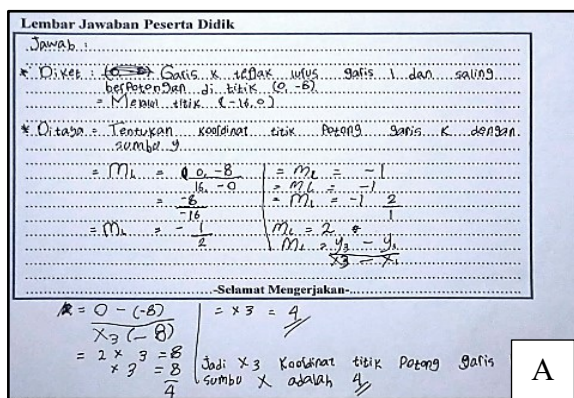 Lembar Jawaban Peserta Didik
Jawab :
* Diket : Garis K tegak lurus garis l dan saling
berpotongan di titik (0, -8)
= Melalui titik (-16,0)
* Ditaya = Tentukan koordinat titik Potong garis K dengan
sumbu y
= ML = 0, -8 / 16, -0
= -8 / -16
= ML = - 1/2
= ML = -1
= ML = -1
= ML = -1 2/1
ML = 2
ML = y3 - y1 / x3 - x1
-Selamat Mengerjakan-
= 0 - (-8) / x3 (- 8)
= 2 x 3 = 8
x 3 = 8/4
= x 3 = 4
Jadi x3 Koordinat titik Potong garis
sumbu x adalah 4
A